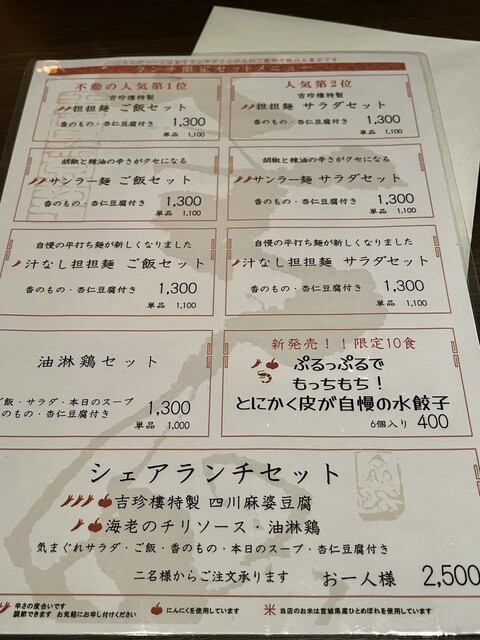 ランチ限定セットメニュー
不動の人気第1位
吉珍樓特製
担担麺 ご飯セット
香のもの・杏仁豆腐付き 1,300
単品 1,100
人気第2位
吉珍樓特製
担担麺 サラダセット
香のもの・杏仁豆腐付き 1,300
単品 1,100
胡椒と辣油の辛さがクセになる
サンラー麺 ご飯セット
香のもの・杏仁豆腐付き 1,300
単品 1,100
胡椒と辣油の辛さがクセになる
サンラー麺 サラダセット
香のもの・杏仁豆腐付き 1,300
単品 1,100
自慢の平打ち麺が新しくなりました
汁なし担担麺 ご飯セット
香のもの・杏仁豆腐付き 1,300
単品 1,100
自慢の平打ち麺が新しくなりました
汁なし担担麺 サラダセット
香のもの・杏仁豆腐付き 1,300
単品 1,100
油淋鶏セット
ご飯・サラダ・本日のスープ
香のもの・杏仁豆腐付き 1,300
単品 1,000
新発売!!限定10食
ぷるっぷるで
もっちもち!
とにかく皮が自慢の水餃子
6個入り 400
シェアランチセット
吉珍樓特製 四川麻婆豆腐
海老のチリソース・油淋鶏
気まぐれサラダ・ご飯・香のもの・本日のスープ・杏仁豆腐付き
二名様からご注文承ります お一人様 2,500
辛さの度合いです
調節できます お気軽にお申し付けください
にんにくを使用しています
米 当店のお米は宮城県産ひとめぼれを使用しています